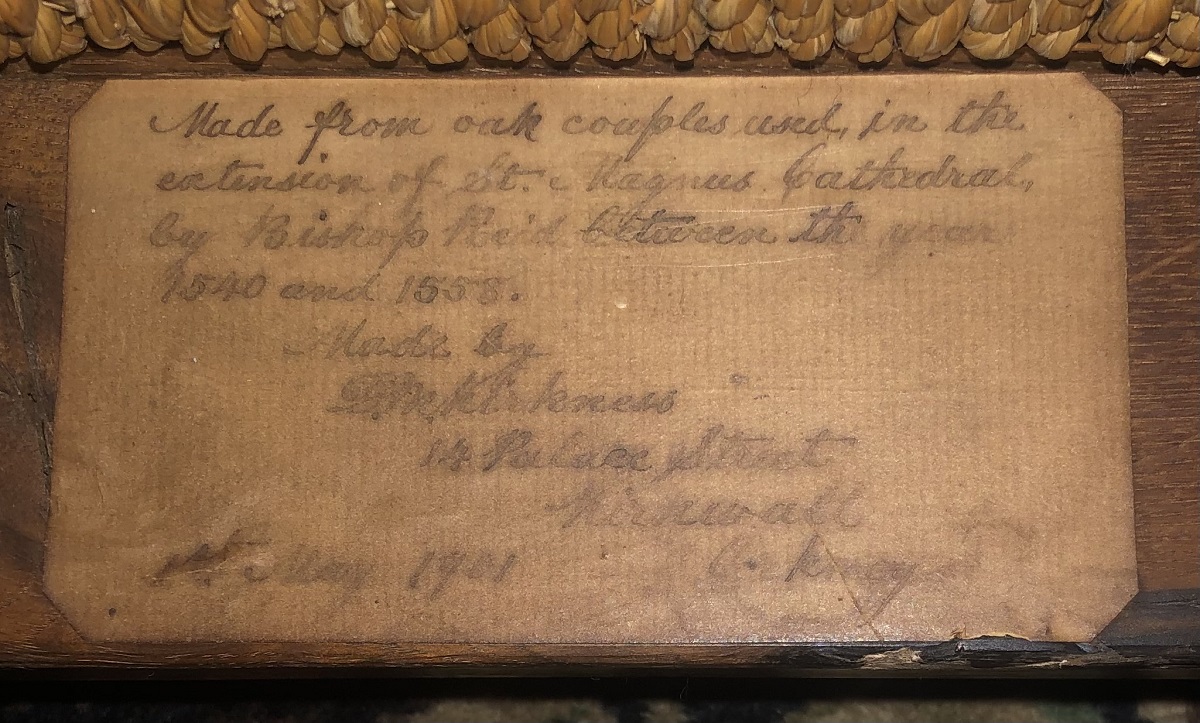 Made from oak couples used, in the
extension of St. Magnus Cathedral,
by Bishop Reid between the year
1540 and 1558.
Made by
D. M. Kirkness
14 Palace Street
Kirkwall
1st May 1921 Orkney